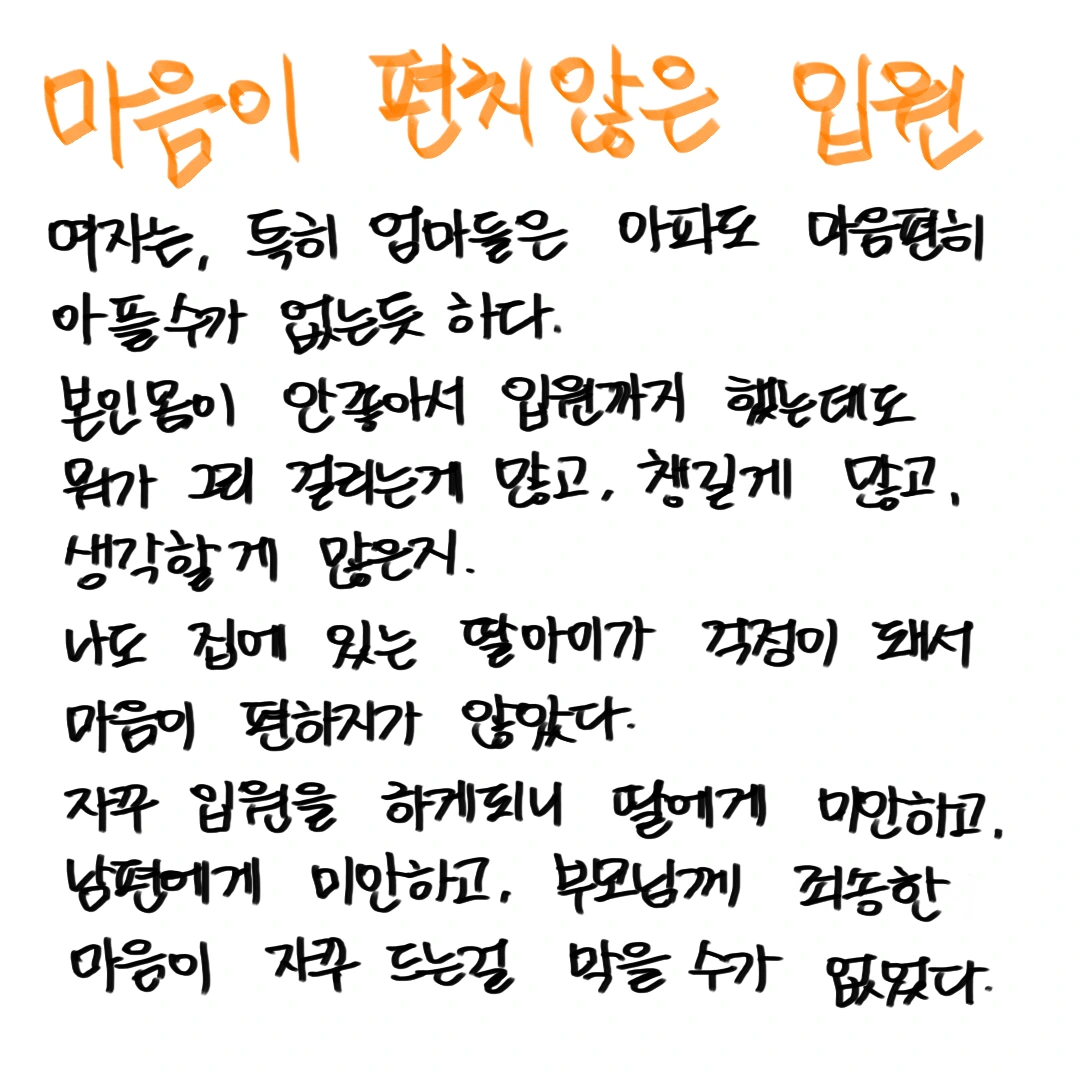 마음이 편치않은 입원
여자는, 특히 엄마들은 아파도 마음편히
아플수가 없는듯 하다.
본인몸이 안좋아서 입원까지 했는데도
뭐가 그리 걸리는게 많고, 챙길게 많고,
생각할게 많은지.
나도 집에 있는 딸아이가 걱정이 돼서
마음이 편하지가 않았다.
자꾸 입원을 하게되니 딸에게 미안하고,
남편에게 미안하고, 부모님께 죄송한
마음이 자꾸 드는걸 막을 수가 없었다.